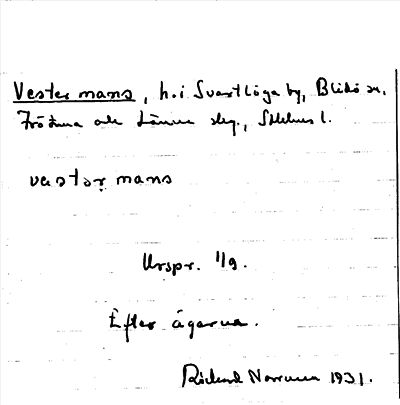 Vestermans, h. i Svartlöga by, Blidö sn,
Frötuna och Länna slg., Sthlms l.
vestərmans
Urspr. 1/9.
Efter ägarna.
Rickard Norrman 1931.